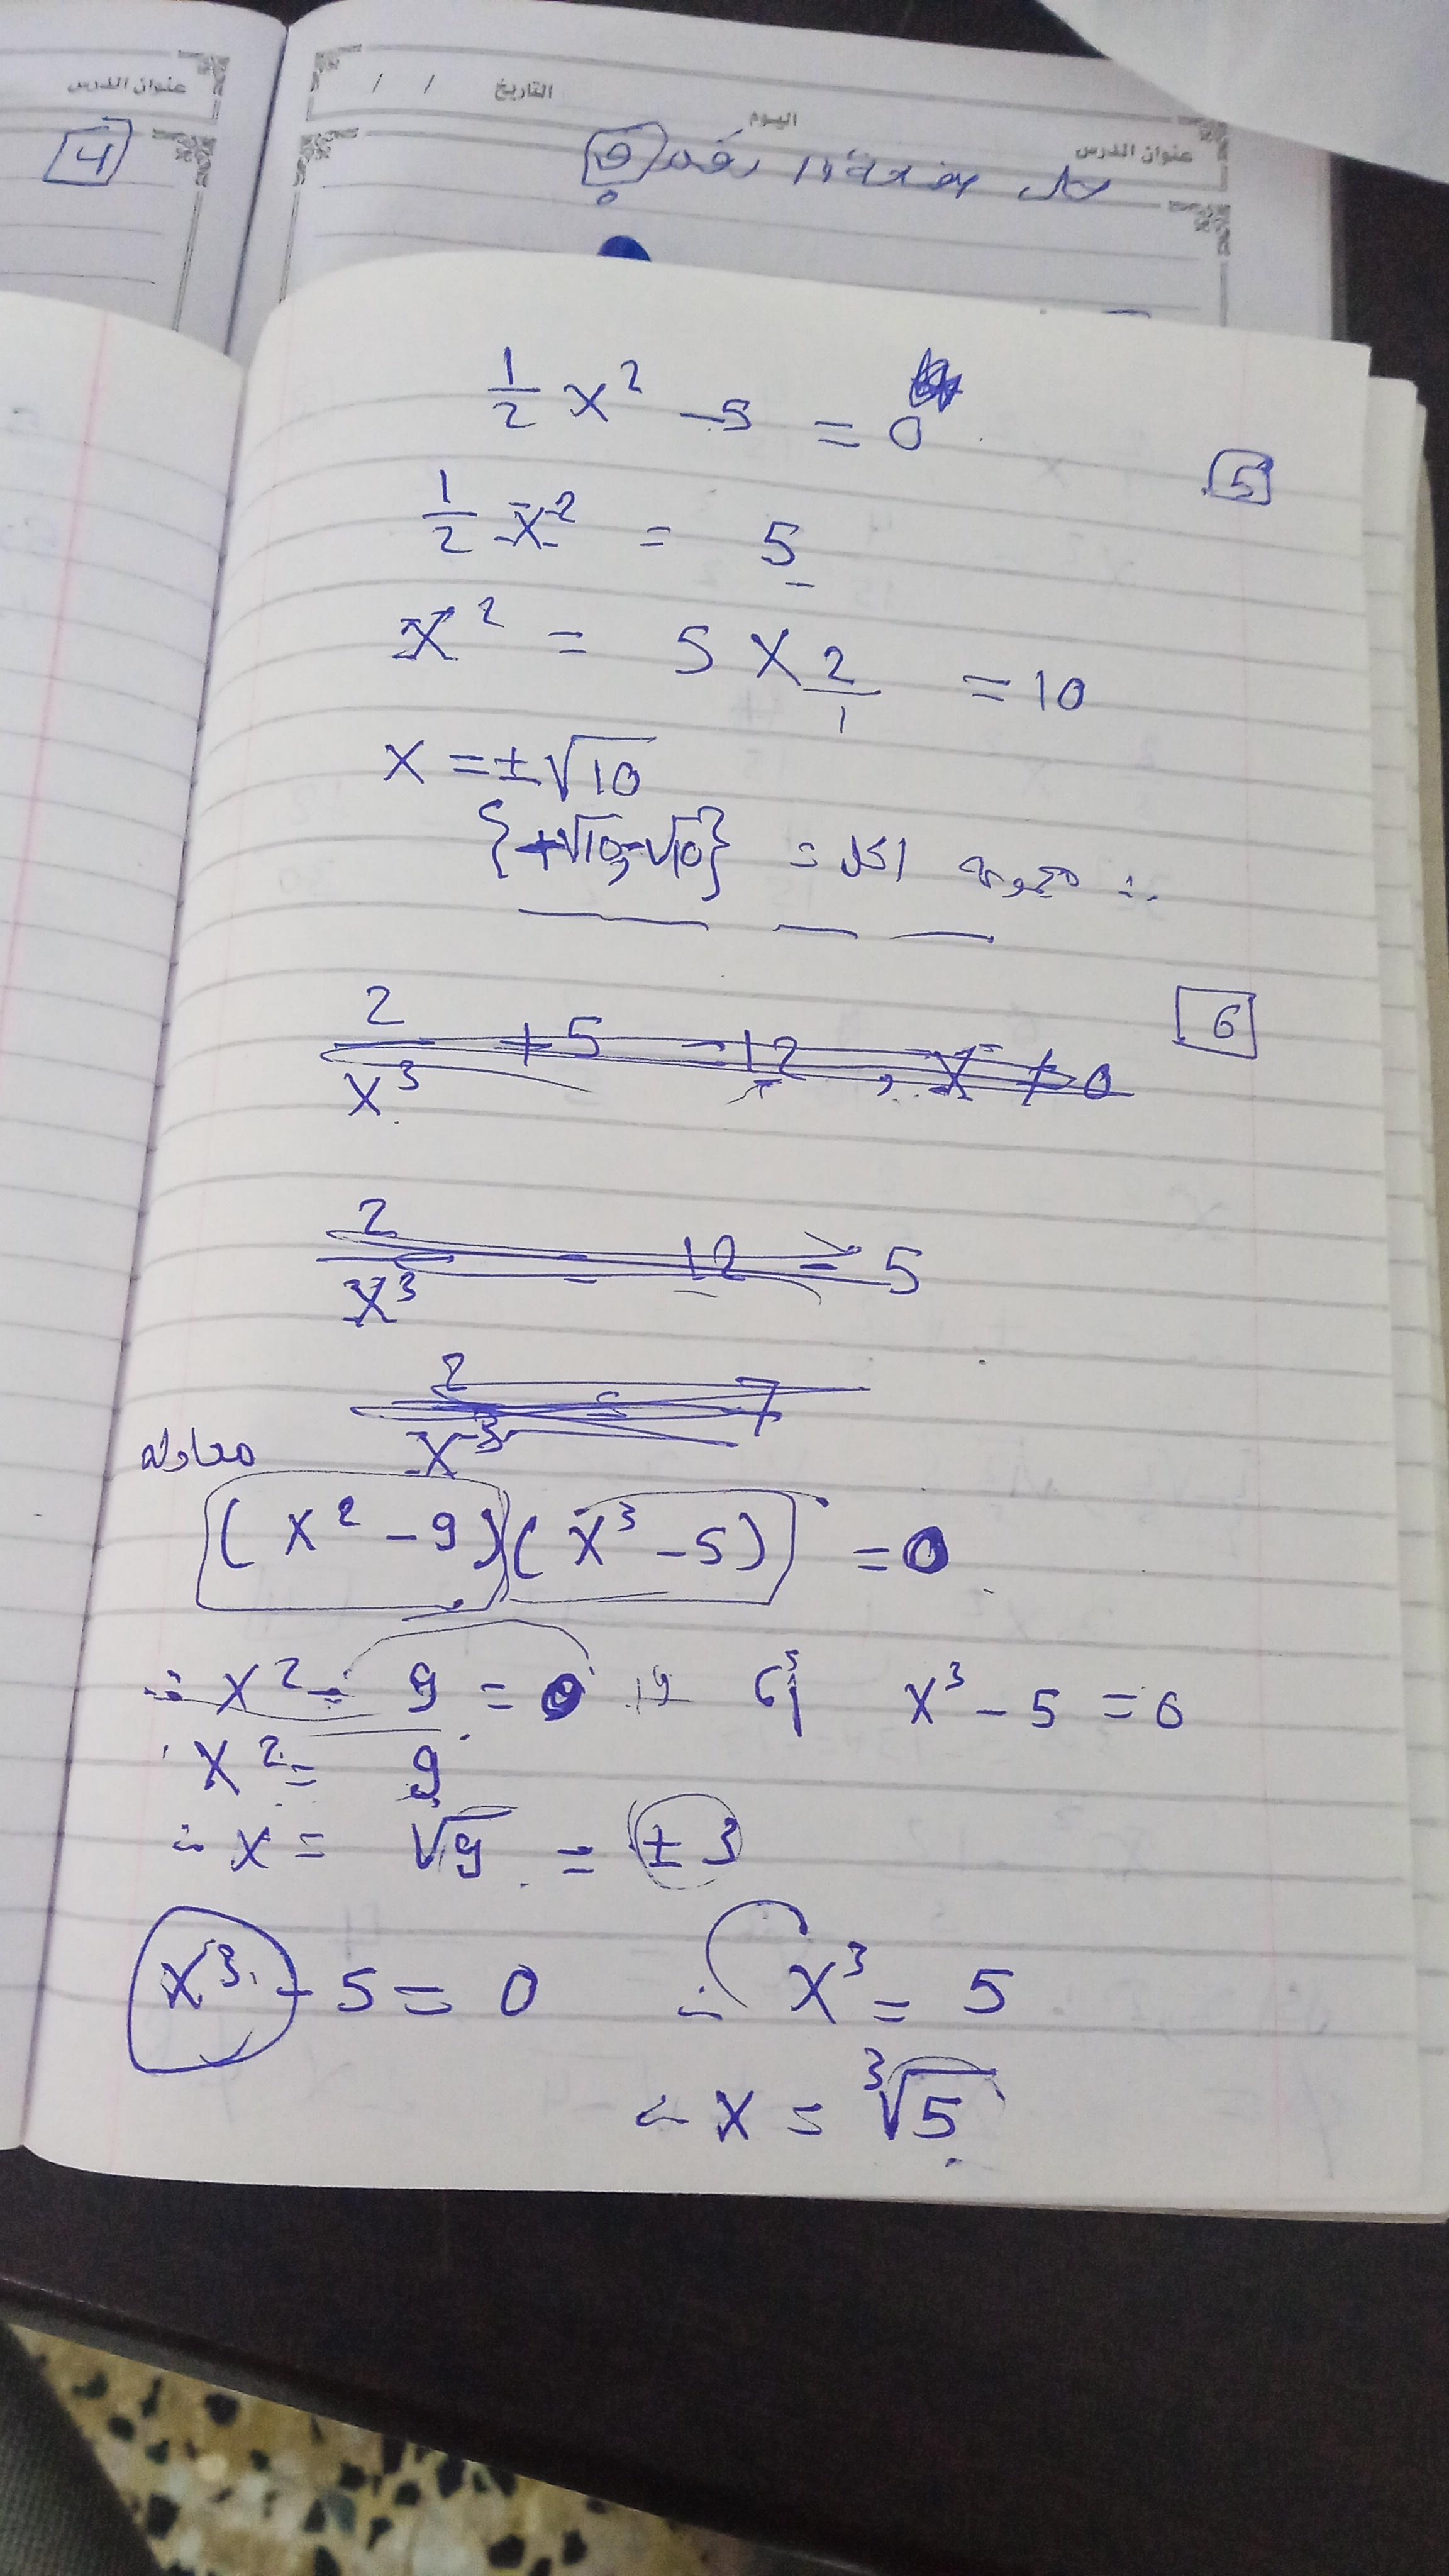 عنوان الدرس
4
التاريخ / /
اليوم
عنوان الدرس
حل صفحة 14 رقم
1/2 x² - 5 = 0
5
1/2 x² = 5
x² = 5 × 2/1 = 10
x = ±√10
∴ مجموعة الحل = {+√10, -√10}
6
2/x³ + 5 = 12 , x ≠ 0
2/x³ = 12 - 5
2/x³ = 7
معادلة
(x² - 9)(x³ - 5) = 0
∴ x² - 9 = 0 أو x³ - 5 = 0
x² = 9
∴ x = √9 = ±3
x³ - 5 = 0 ∴ x³ = 5
∴ x = ³√5